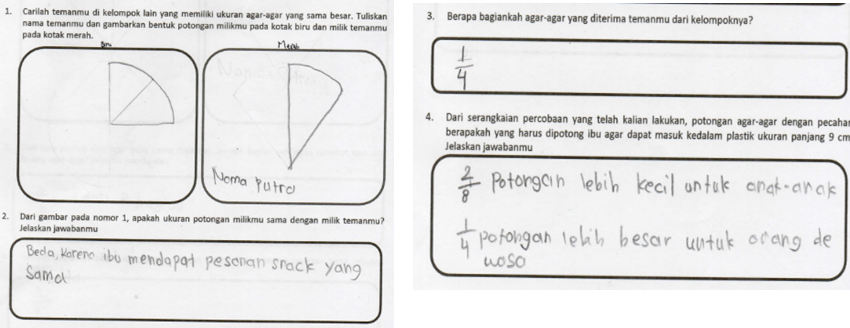 1. Carilah temanmu di kelompok lain yang memiliki ukuran agar-agar yang sama besar. Tuliskan
nama temanmu dan gambarkan bentuk potongan milikmu pada kotak biru dan milik temanmu
pada kotak merah.
Biru
Merah
Noma Putra
2. Dari gambar pada nomor 1, apakah ukuran potongan milikmu sama dengan milik temanmu?
Jelaskan jawabanmu
Beda, Karena ibu mendapat pesanan snack yang
Sama
3. Berapa bagiankah agar-agar yang diterima temanmu dari kelompoknya?
1/4
4. Dari serangkaian percobaan yang telah kalian lakukan, potongan agar-agar dengan pecahan
berapakah yang harus dipotong ibu agar dapat masuk kedalam plastik ukuran panjang 9 cm
Jelaskan jawabanmu
2/8 Potongan lebih kecil untuk anak-anak
1/4 potongan lebih besar untuk orang de
woso